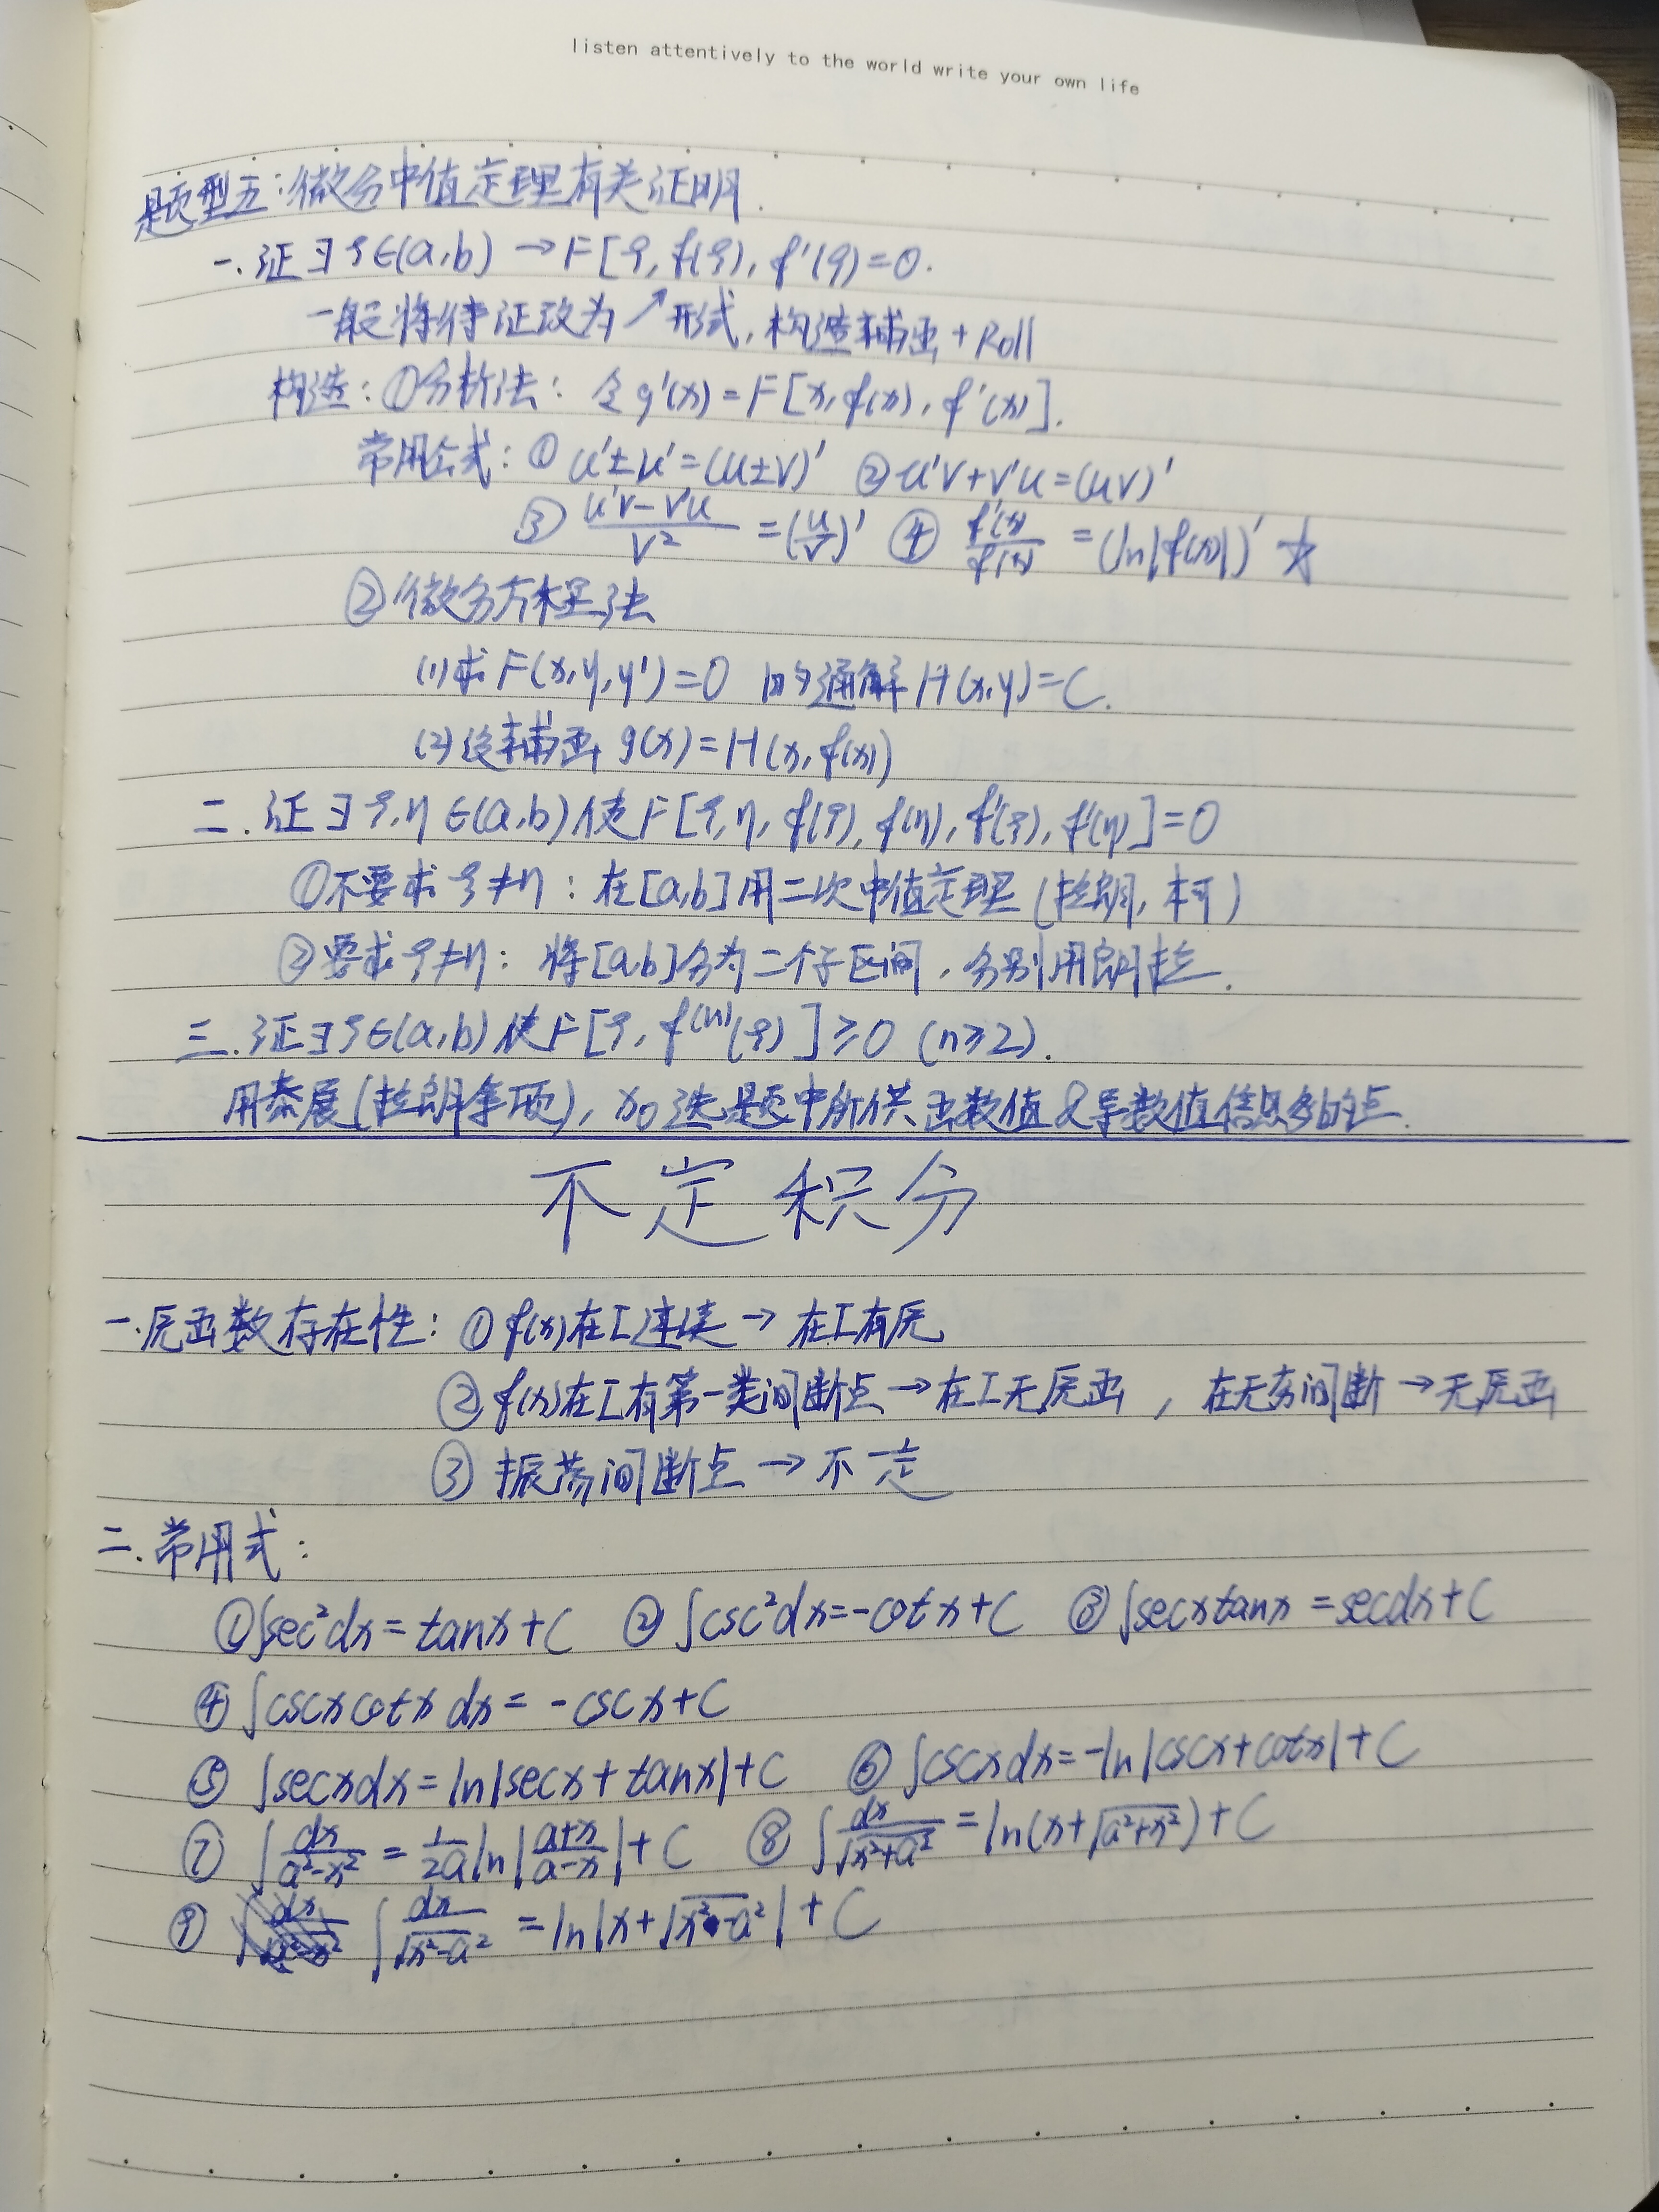 listen attentively to the world write your own life
题型五:微分中值定理有关证明.
一.证∃ξ∈(a,b) →F[ξ,f(ξ),f'(ξ)=0.
一般将待证改为↗形式,构造辅函+Roll
构造:①分析法:令g'(x)=F[x,f(x),f'(x)].
常用公式:① u'±u'=(u±v)' ②u'v+v'u=(uv)'
③ \frac{u'v-v'u}{v²}=(\frac{u}{v})' ④ \frac{f'(x)}{f(x)}=(ln|f(x)|)' ☆
②微分方程法
(1)求F(x,y,y')=0 的通解H(x,y)=C.
(2)设辅函 g(x)=H(x,f(x))
二.证∃ξ,η∈(a,b)使F[ξ,η,f(ξ),f(η),f'(ξ),f'(η)]=0
①不要求ξ≠η:在[a,b]用二次中值定理(拉朗,柯)
②要求ξ≠η:将[a,b]分为二个子区间,分别用朗拉.
三.证∃ξ∈(a,b)使F[ξ,f⁽ⁿ⁾(ξ)]≥0 (n≥2).
用泰展(拉朗余项),x₀选题中所供函数值&导数值信息多的点.
不定积分
一.原函数存在性:①f(x)在I连续→在I有原
②f(x)在I有第一类间断点→在I无原函,在无穷间断→无原函
③振荡间断点→不一定
二.常用式:
①∫sec²dx=tanx+C ②∫csc²dx=-cotx+C ③∫secxtanx=secdx+C
④∫cscxcotxdx=-cscx+C
⑤∫secxdx=ln|secx+tanx|+C ⑥∫cscxdx=-ln|cscx+cotx|+C
⑦∫\frac{dx}{a²-x²}=\frac{1}{2a}ln|\frac{a+x}{a-x}|+C ⑧∫\frac{dx}{√(x²+a²)}=ln(x+√(a²+x²))+C
⑨∫\frac{dx}{√(x²-a²)}=ln|x+√(x²-a²)|+C